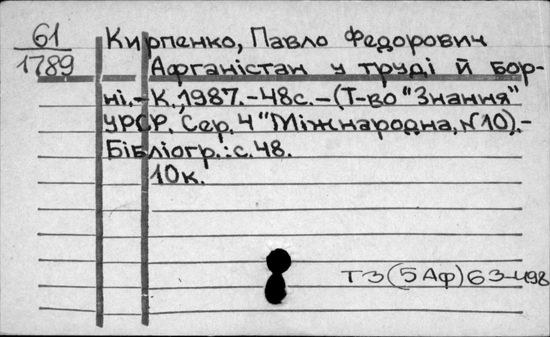 61
1789
Кирпенко, Павло Федорович
Афганістан у труді й бор-
ні.-К.,1987.-48с.-(Т-во "Знання"
УРСР. Сер. 4 "Міжнародна, N10).-
Бібліогр.: с.48.
10к.
Т3(5Аф)63-498